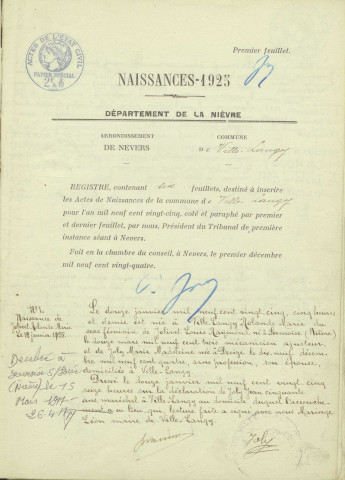 Premier feuillet.
ACTES DE L'ÉTAT CIVIL
PAPIER SPÉCIAL
NAISSANCES-1925
DÉPARTEMENT DE LA NIÈVRE
ARRONDISSEMENT
DE NEVERS
COMMUNE
DE Ville-Langy
REGISTRE, contenant six feuillets, destiné à inscrire
les Actes de Naissances de la commune de Ville-Langy
pour l'an mil neuf cent vingt-cinq, coté et paraphé par premier
et dernier feuillet, par nous, Président du Tribunal de première
instance séant à Nevers.
Fait en la chambre du conseil, à Nevers, le premier décembre
mil neuf cent vingt-quatre.
N° 1.
Naissance de
Yolande Marie
Le 12 janvier 1925
Décédée à
Le douze janvier mil neuf cent vingt cinq, cinq heures
et demie est née à Ville-Langy Yolande Marie du
sexe féminin de
le douze mars mil neuf cent trois mécanicien ajusteur
et de Joly Marie Madeleine née à Decize le dix neuf décem
bre mil neuf cent quatre, sans profession, son épouse,
domiciliés à Ville-Langy.
Dressé le douze janvier mil neuf cent vingt cinq
seize heures sur la déclaration de Joly Jean cinquante
ans, maréchal à Ville-Langy au domicile duquel l'accouche-
ment a eu lieu qui, lecture faite a signé avec nous
Léon maire de Ville-Langy.
Joly